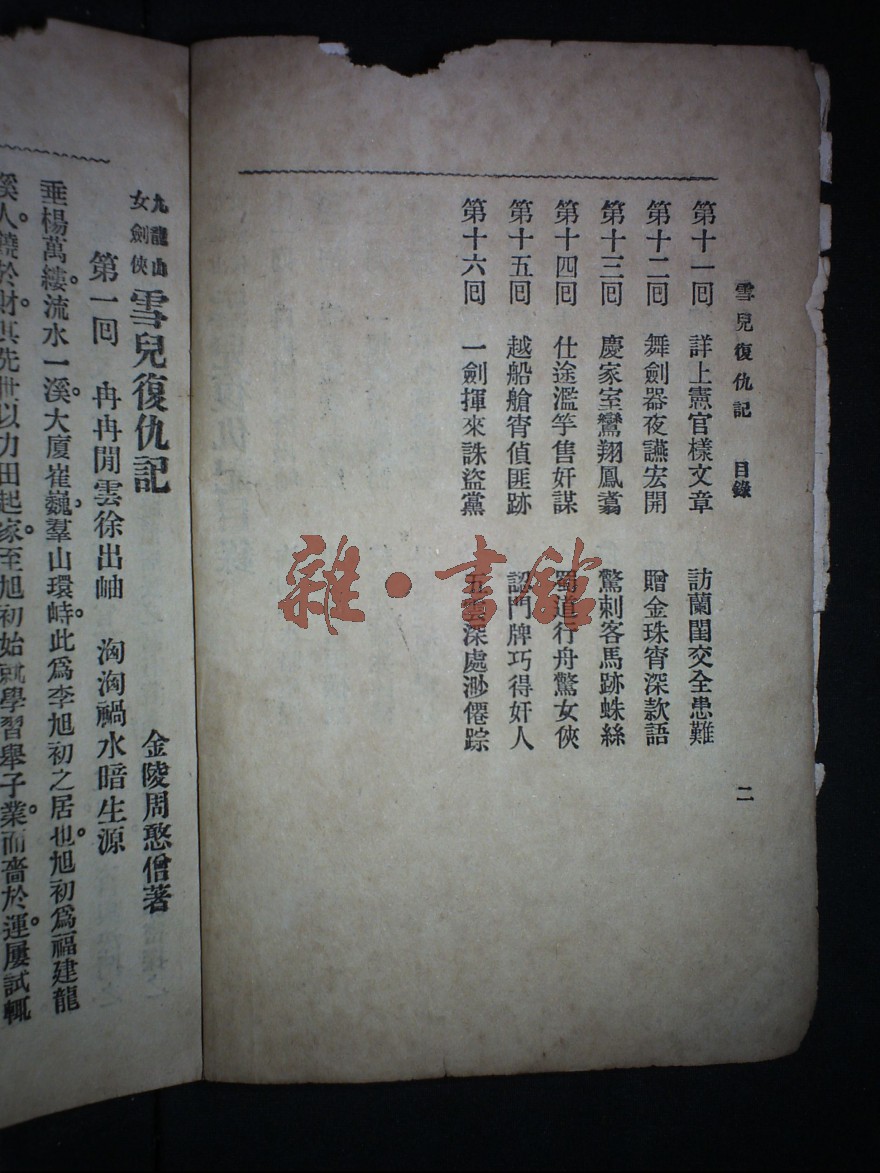 雪兒復仇記 目錄 二
第十一回 詳上憲官樣文章 訪蘭閨交全患難
第十二回 舞劍器夜讌宏開 贈金珠宵深款語
第十三回 慶家室鸞翔鳳翥 驚刺客馬跡蛛絲
第十四回 仕途濫竽售奸謀 蜀道行舟驚女俠
第十五回 越船艙宵偵匪跡 認門牌巧得奸人
第十六回 一劍揮來誅盜黨 五雲深處渺僊踪
雜·書館
九龍山
女劍俠
雪兒復仇記
金陵周憨僧著
第一回 冉冉閒雲徐出岫 洶洶禍水暗生源
垂楊萬縷。流水一溪。大廈崔巍。羣山環峙。此爲李旭初之居也。旭初爲福建龍
溪人。饒於財。其先世以力田起家。至旭初始就學習舉子業。而嗇於運。屢試輒